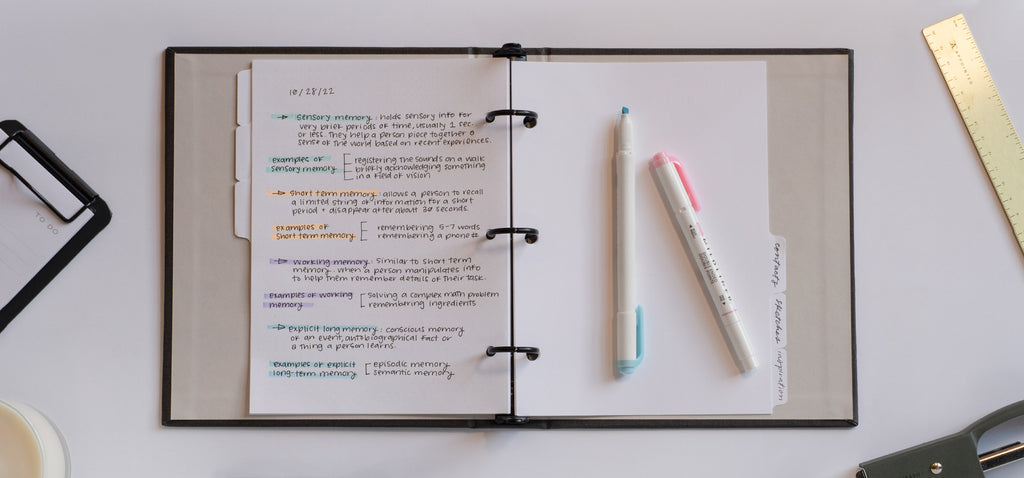 10/28/22
→ sensory memory: holds sensory info for
very brief periods of time, usually 1 sec.
or less. They help a person piece together a
sense of the world based on recent experiences.
examples of
sensory memory
registering the sounds on a walk
briefly acknowledging something
in a field of vision
→ short term memory: allows a person to recall
a limited string of information for a short
period + disappear after about 30 seconds.
examples of
short term memory
remembering 5-7 words
remembering a phone #
→ working memory: similar to short term
memory. when a person manipulates info
to help them remember details of their task.
examples of working
memory
solving a complex math problem
remembering ingredients
→ explicit long memory: conscious memory
of an event, autobiographical fact or
a thing a person learns.
examples of explicit
long-term memory
episodic memory
semantic memory
TO DO
contacts
sketches
inspiration